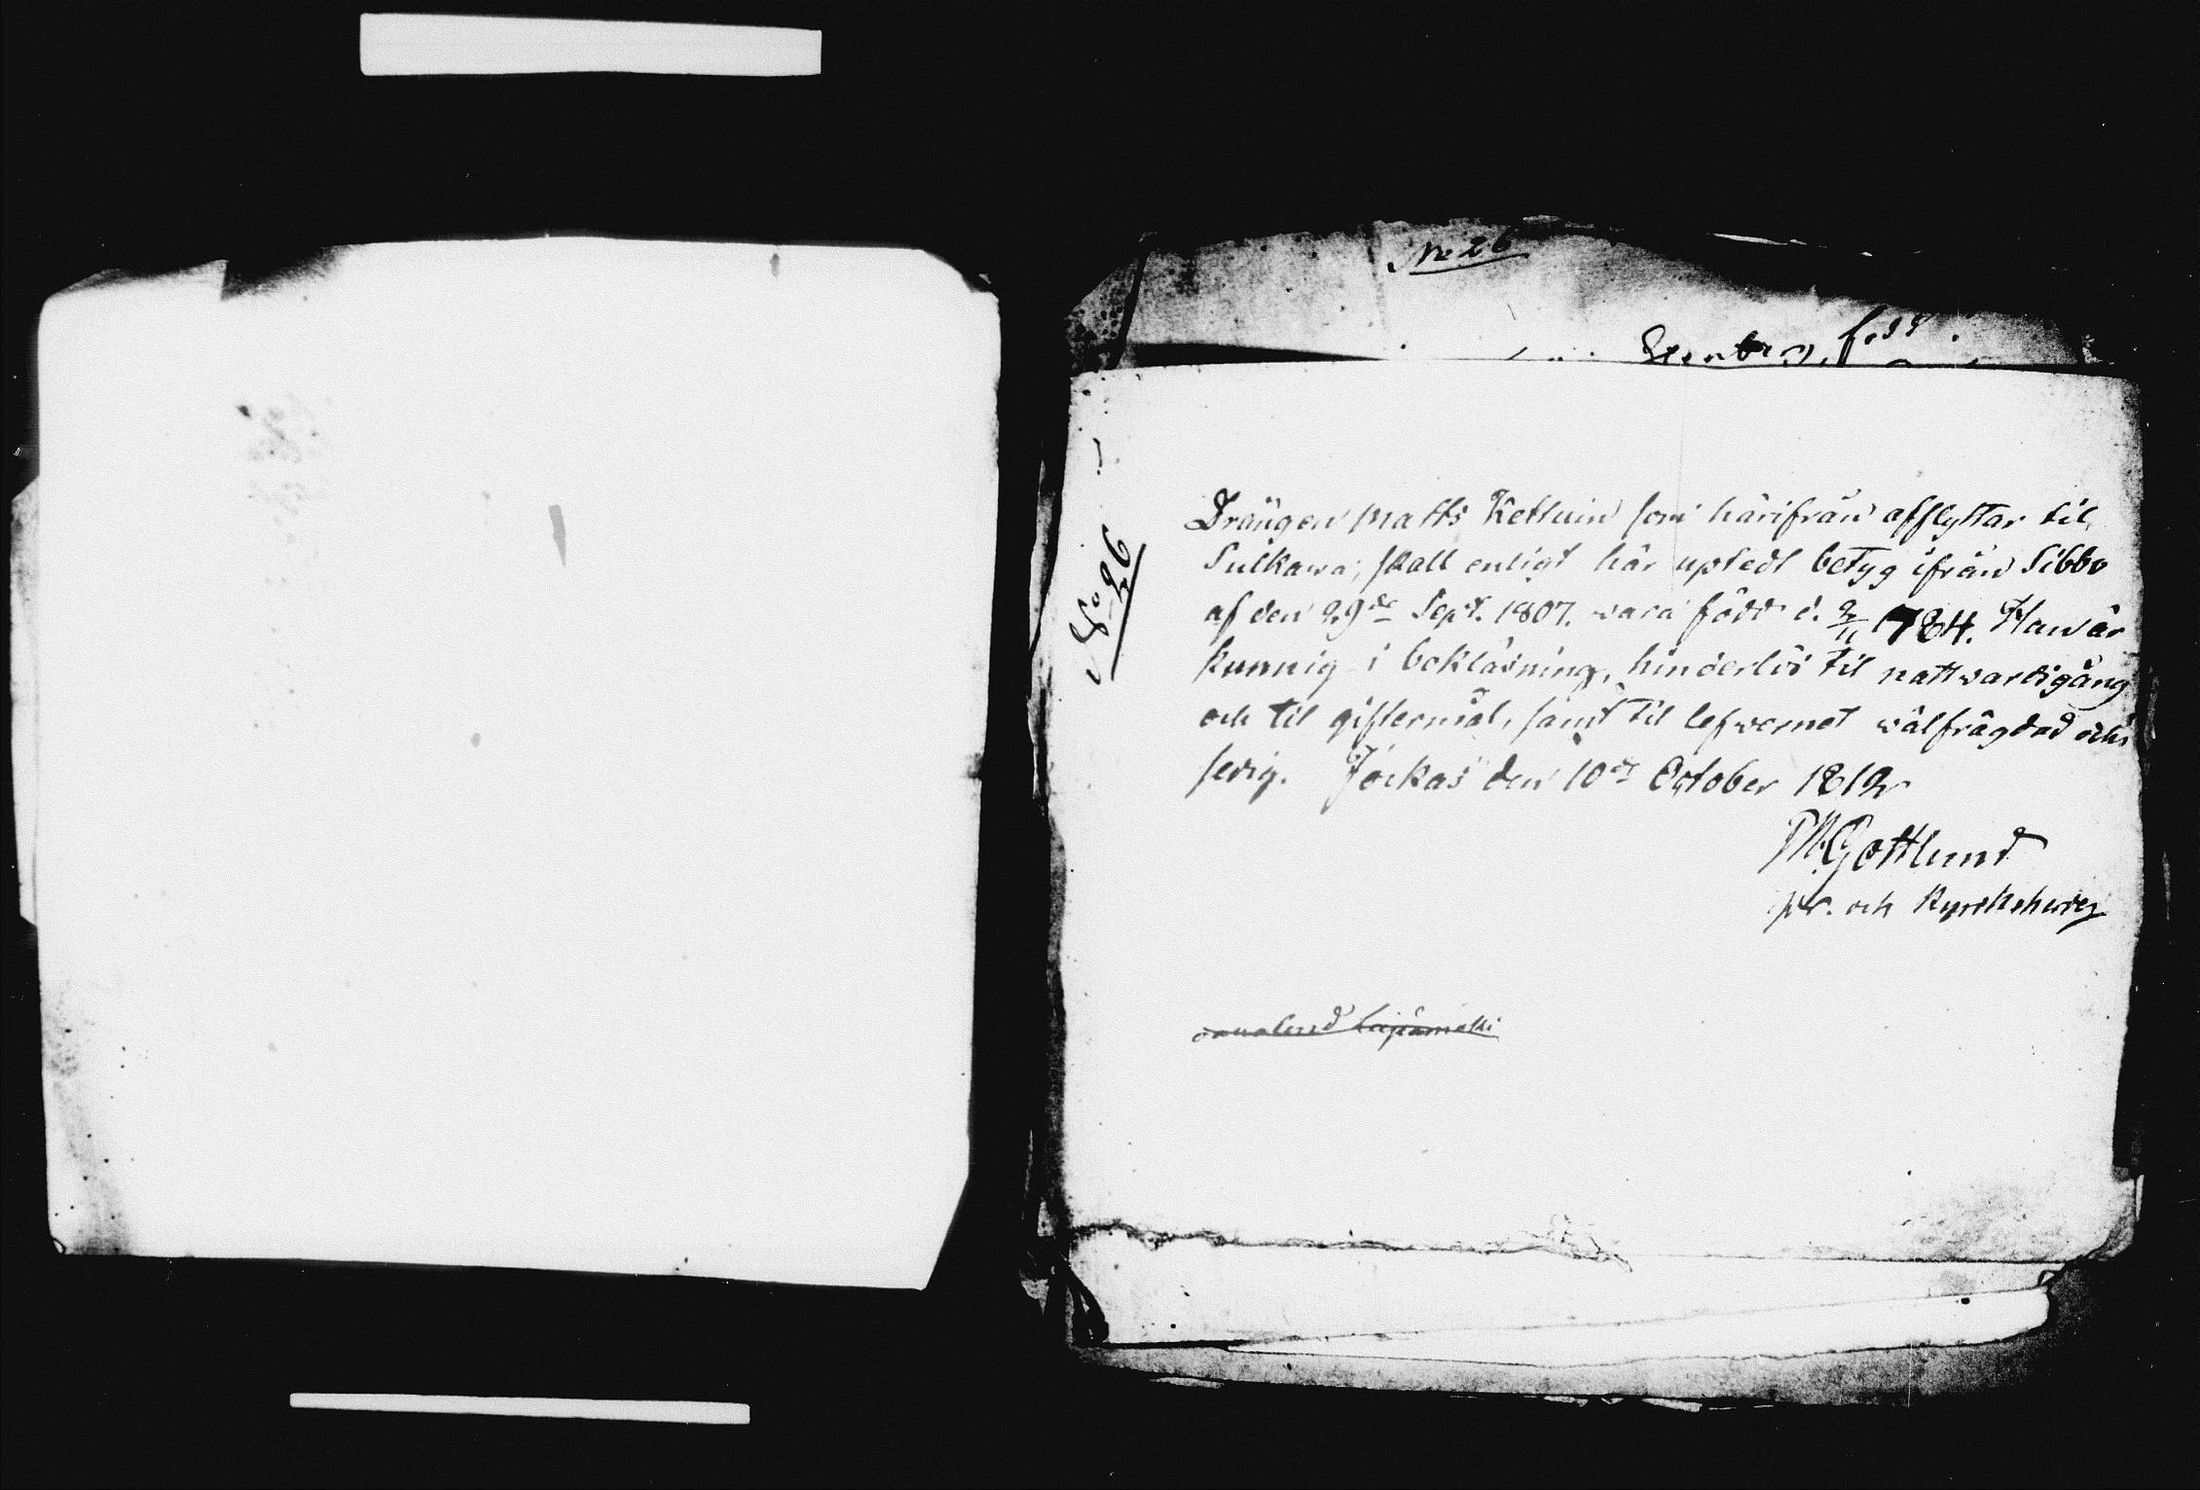 No 26
No 26
Drängen Matts Kettuin som härifrån afflyttar til
Sulkawa, skall enligt här uptedt betyg ifrån Sibbo
af den 29de Sept. 1807. vara född d. 2/11 1784. Han är
kunnig i bokläsning, hinderlös til nattvardsgång
och til giftermål, samt til lefwernet wälfrägdad och
sedig. Jockas den 10de October 1812
M. Gottlund
pr. och Kyrckoherdez